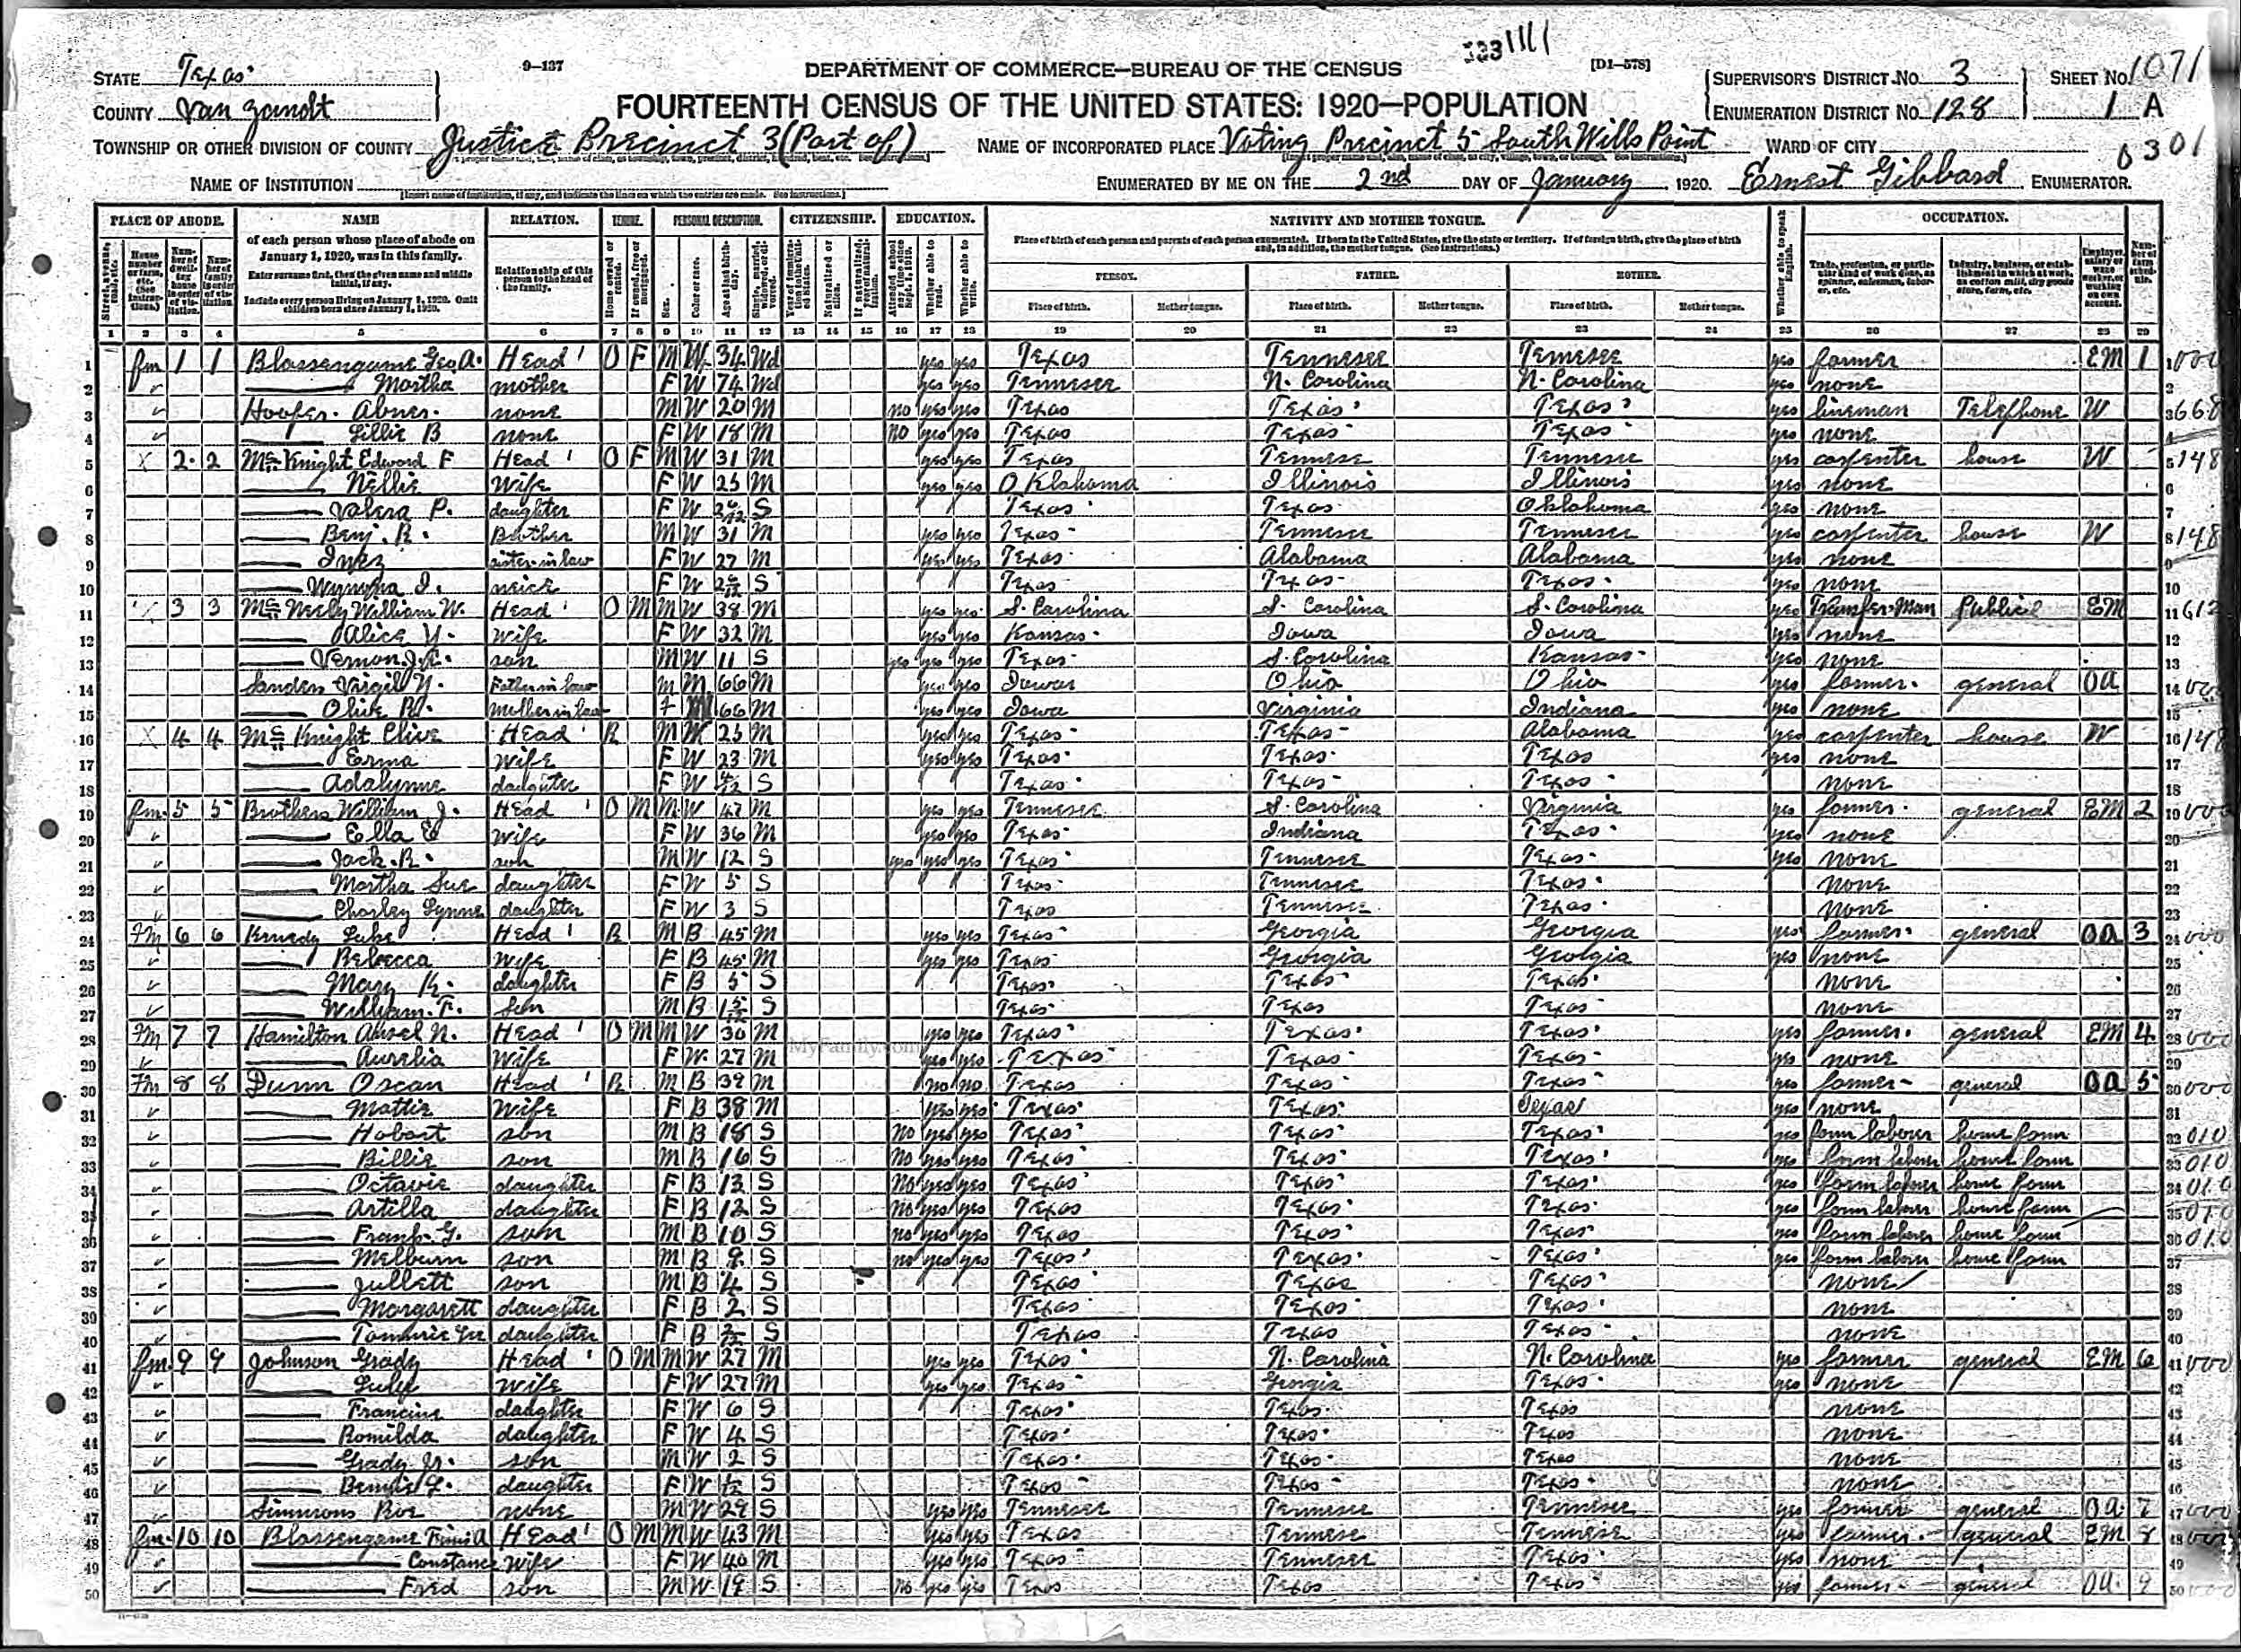 J331111
STATE Texas 9-137 DEPARTMENT OF COMMERCE—BUREAU OF THE CENSUS [D1-578] SUPERVISOR'S DISTRICT No. 3 SHEET No. 1071
COUNTY Van Zandt FOURTEENTH CENSUS OF THE UNITED STATES: 1920—POPULATION ENUMERATION DISTRICT No. 128 1 A
TOWNSHIP OR OTHER DIVISION OF COUNTY Justice Precinct 3 (Part of) NAME OF INCORPORATED PLACE Voting Precinct 5 South Wills Point WARD OF CITY 0301
NAME OF INSTITUTION ENUMERATED BY ME ON THE 2nd DAY OF January, 1920. Ernest Gibbard ENUMERATOR.
PLACE OF ABODE. NAME RELATION. TENURE. PERSONAL DESCRIPTION. CITIZENSHIP. EDUCATION. NATIVITY AND MOTHER TONGUE. OCCUPATION.
of each person whose place of abode on January 1, 1920, was in this family.
Enter surname first, then the given name and middle initial, if any.
Include every person living on January 1, 1920. Omit children born since January 1, 1920.
Relationship of this person to the head of the family.
Place of birth of each person and parents of each person enumerated. If born in the United States, give the state or territory. If of foreign birth, give the place of birth and, in addition, the mother tongue. (See instructions.)
PERSON. FATHER. MOTHER.
Place of birth. Mother tongue. Place of birth. Mother tongue. Place of birth. Mother tongue.
1 fm 1 1 Blassengame Geo A. Head O F M W 34 Wd yes yes Texas Tennesee Tennesee yes farmer EM 1
2 Martha mother F W 74 Wd yes yes Tennesee N. Carolina N. Carolina yes none
3 Hooper Abner none M W 20 M no yes yes Texas Texas Texas yes lineman Telephone W
4 Lillie B none F W 18 M no yes yes Texas Texas Texas yes none
5 X 2 2 McKnight Edward F Head O F M W 31 M yes yes Texas Tennese Tennesee yes carpenter house W
6 Nellie wife F W 25 M yes yes Oklahoma Illinois Illinois yes none
7 Valera P. daughter F W S Texas Texas Oklahoma yes none
8 Benj. R. Brother M W 31 M yes yes Texas Tennesee Tennesee yes carpenter house W
9 Inez sister in law F W 27 M yes yes Texas Alabama Alabama yes none
10 neice F W S Texas Texas Texas yes none
11 X 3 3 McNeely William W. Head O M M W 38 M yes yes S. Carolina S. Carolina S. Carolina yes Transfer Man Public EM
12 Alice Y. wife F W 32 M yes yes Kansas Iowa Iowa yes none
13 Vernon J. C. son M W 11 S yes yes yes Texas S. Carolina Kansas yes none
14 Sanders Virgil Y. Father in law M 66 M yes yes Iowa Ohio Ohio yes farmer general OA
15 Olive B. mother in law F 66 M yes yes Iowa Virginia Indiana yes none
16 X 4 4 McKnight Clive Head R M W 25 M yes yes Texas Texas Alabama yes carpenter house W
17 Erma wife F W 23 M yes yes Texas Texas Texas yes none
18 Adalynne daughter F W S Texas Texas Texas none
19 fm 5 5 Brothers William J. Head O M M W 47 M yes yes Tennesee S. Carolina Virginia yes farmer general EM 2
20 Ella E wife F W 36 M yes yes Texas Indiana Texas yes none
21 Jack R. son M W 12 S yes yes yes Texas Tennesee Texas yes none
22 Martha Sue daughter F W 5 S Texas Tennesee Texas none
23 Charley Lynne daughter F W 3 S Texas Tennesee Texas none
24 Fm 6 6 Kenedy Luke Head R M B 45 M yes yes Texas Georgia Georgia yes farmer general OA 3
25 Rebecca wife F B 45 M yes yes Texas Georgia Georgia yes none
26 Mary K. daughter F B 5 S Texas Texas Texas none
27 William F. son M B S Texas Texas Texas none
28 Fm 7 7 Hamilton Ansel N. Head O M M W 30 M yes yes Texas Texas Texas yes farmer general EM 4
29 Aurelia Wife F W 27 M yes yes Texas Texas Texas yes none
30 Fm 8 8 Dunn Oscar Head R M B 39 M no no Texas Texas Texas yes farmer general OA 5
31 Mattie Wife F B 38 M yes yes Texas Texas Texas yes none
32 Hobart son M B 18 S No yes yes Texas Texas Texas yes farm laborer home farm
33 Billie son M B 16 S No yes yes Texas Texas Texas yes farm laborer home farm
34 Octavie daughter F B 13 S No yes yes Texas Texas Texas yes farm laborer home farm
35 Artilla daughter F B 12 S No yes yes Texas Texas Texas yes farm laborer home farm
36 Frank G. son M B 10 S no yes yes Texas Texas Texas yes farm laborer home farm
37 Melburn son M B 9 S no yes yes Texas Texas Texas yes farm laborer home farm
38 Jullett son M B 4 S Texas Texas Texas none
39 Margarett daughter F B 2 S Texas Texas Texas none
40 Tommie daughter F B S Texas Texas Texas none
41 fm 9 9 Johnson Grady Head O M M W 27 M yes yes Texas N. Carolina N. Carolina yes farmer general EM 6
42 Lula wife F W 27 M yes yes Texas Georgia Texas yes none
43 Francine daughter F W 6 S Texas Texas Texas none
44 Romilda daughter F W 4 S Texas Texas Texas none
45 Grady Jr. son M W 2 S Texas Texas Texas none
46 daughter F W S Texas Texas Texas none
47 Simmons Roe none M W 29 S yes yes Tennesee Tennesee Tennesee yes farmer general OA 7
48 fm 10 10 Blassengame Head O M M W 43 M yes yes Texas Tennese Tennesse yes farmer general EM 8
49 Constance wife F W 40 M yes yes Texas Tennesee Texas yes none
50 Fred son M W 19 S No yes yes Texas Texas Texas yes farmer general OA 9
MyFamily.com